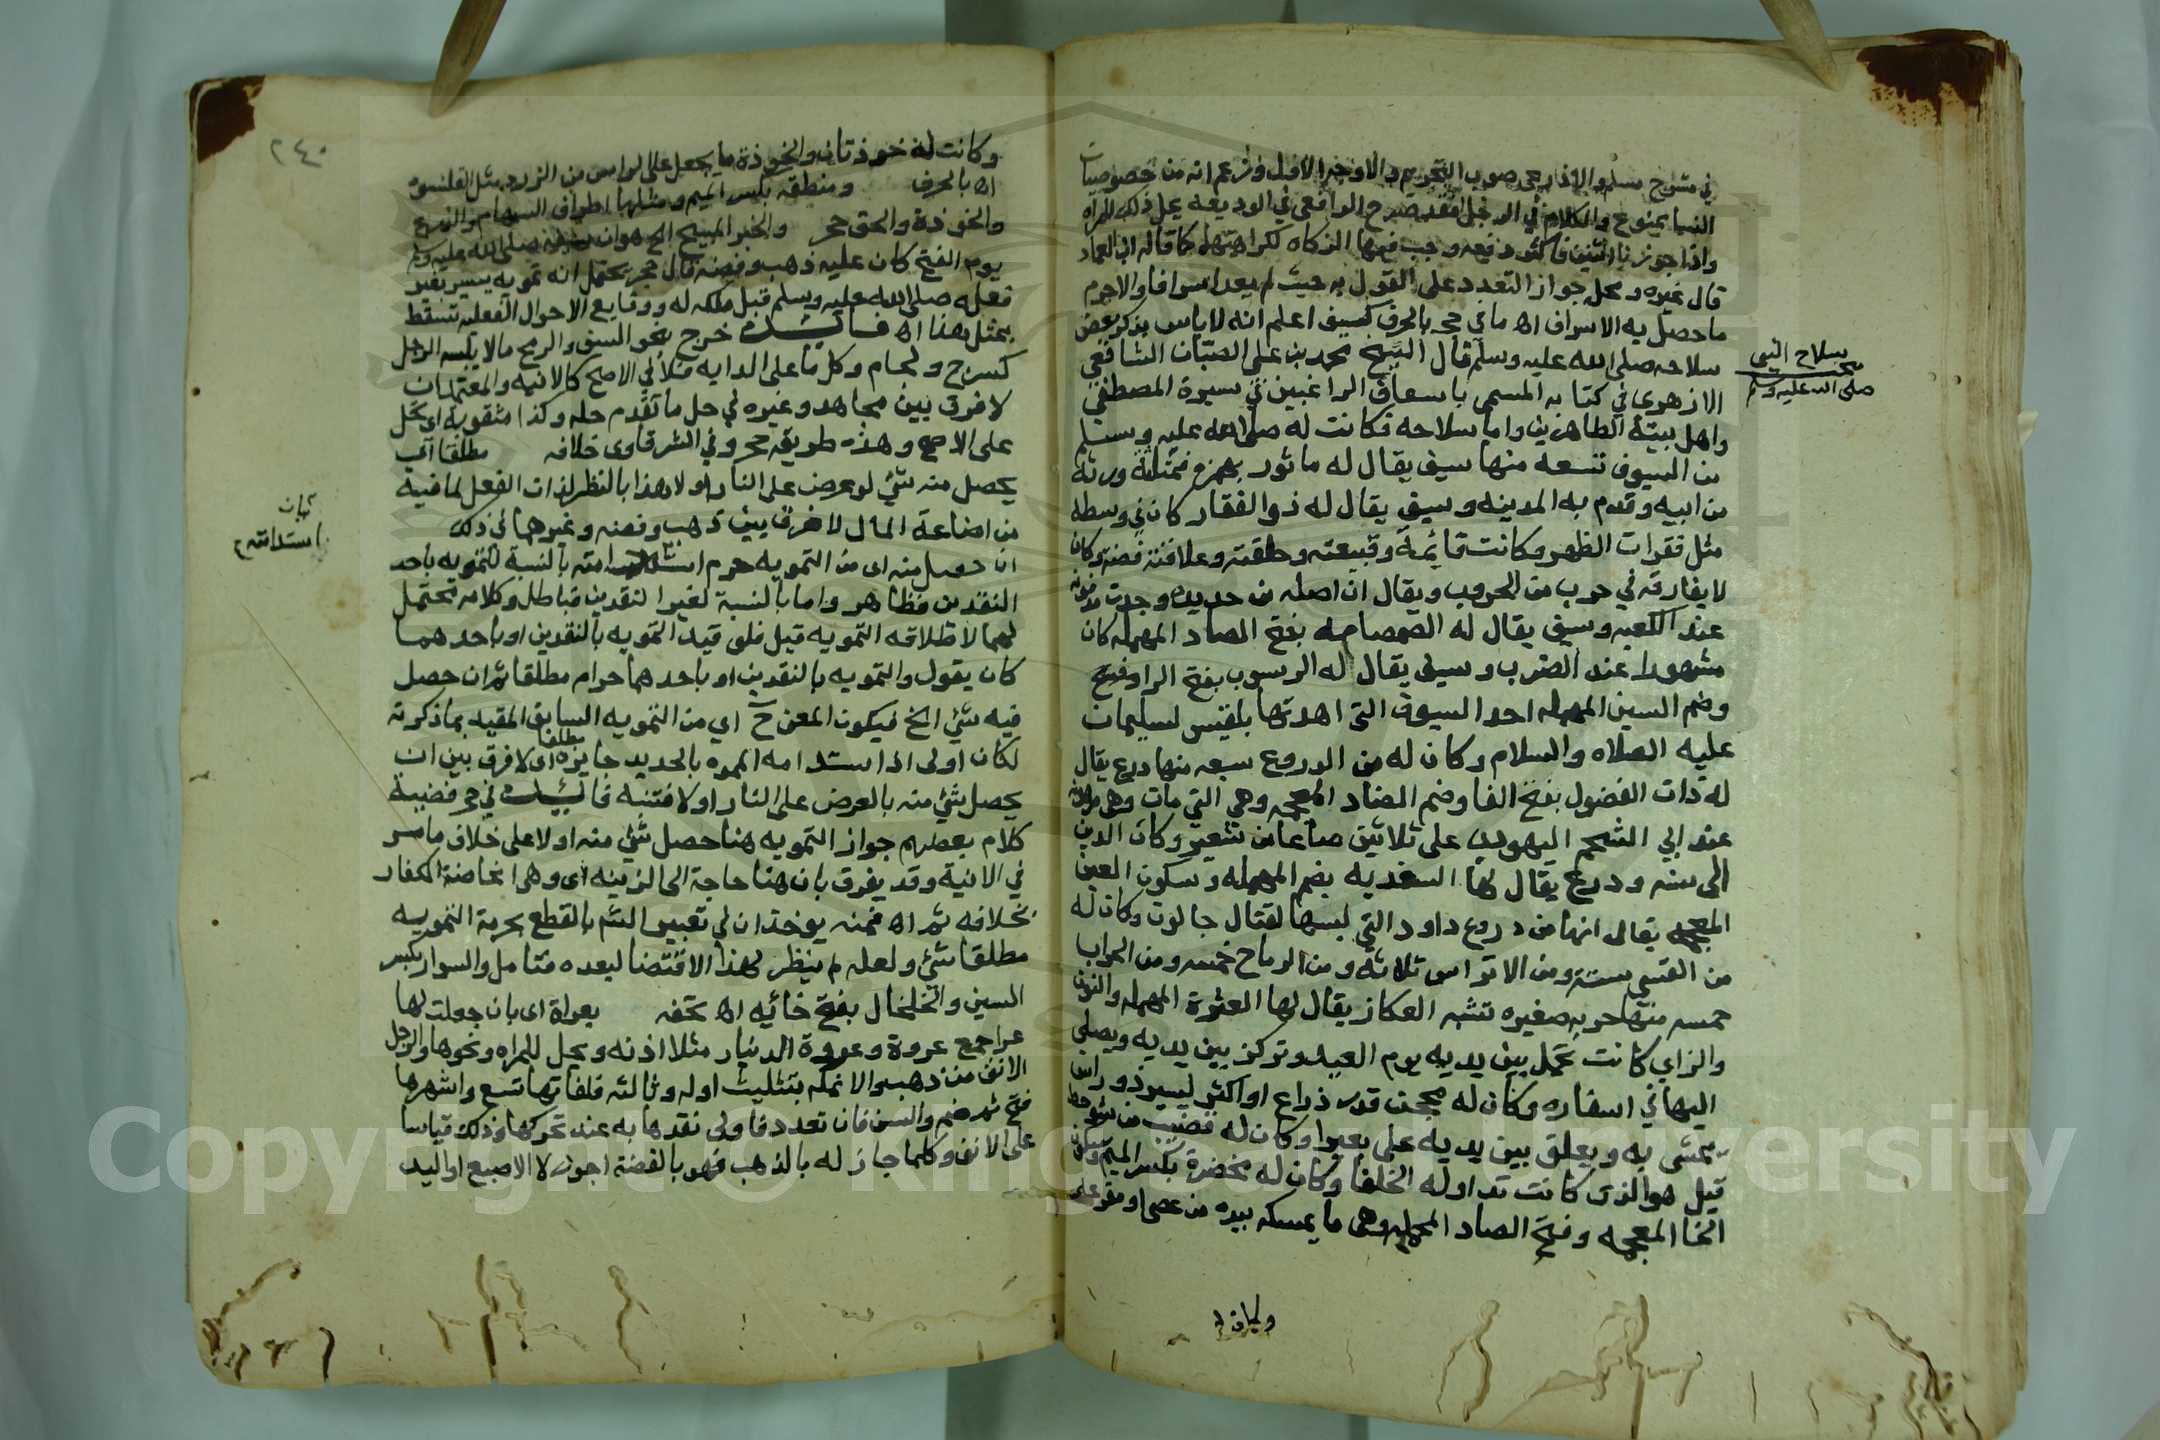 في شرح مسلم والاذرعي صوب التحريم والاوجه الاول وزعم انه من خصوصيات
النسا ممنوع والكلام في الرجل فقد صرح الرافعي في الوديعه يحل ذلك للمراه
واذا جوزنا اثنين فاكثر دفعه وجب فيها الزكاه لكراهتها كما قاله ابن العماد
قال غيره ومحل جواز التعدد على القول به حيث لم يعد اسرافا والاحرم
ما حصل به الاسراف اه ما في حجر بالحرف كسيف اعلم انه لا باس بذكر بعض
سلاحه صلى الله عليه وسلم قال الشيخ محمد بن علي الصبان الشافعي
الازهري في كتابه المسمى باسعاف الراغبين في سيرة المصطفى
واهل بيته الطاهرين واما سلاحه فكانت له صلى الله عليه وسلم
من السيوف تسعه منها سيف يقال له ماثور بهمزه فمثلثة ورثه
من ابيه وقدم به المدينه وسيف يقال له ذو الفقار كان في وسطه
مثل فقرات الظهر وكانت قائمته وقبيعته وحلقته وعلاقته فضه وكان
لا يفارقه في حرب من الحروب ويقال ان اصله من حديده وجدت مدفونه
عند الكعبه وسيف يقال له الصمصامه بفتح الصاد المهمله كان
مشهورا عند الضرب وسيف يقال له الرسوب بفتح الرا وفتح
وضم السين المهمله احد السيوف التي اهدتها بلقيس لسليمان
عليه الصلاه والسلام وكان له من الدروع سبعه منها درع يقال
له ذات الفضول بفتح الفا وضم الضاد المعجمه وهي التي مات وهي مرهونه
عند ابي الشحم اليهودي على ثلاثين صاعا من شعير وكان الدين
الى سنه ودرع يقال لها السغديه بضم المهمله وسكون الغين
المعجمه يقال انها من دروع داود التي لبسها لقتال جالوت وكان له
من القسي سته ومن الاتراس ثلاثه ومن الرماح خمسه ومن الحراب
خمسه منها حربه صغيره تشبه العكاز يقال لها العنزة المهمله والنون
والزاي كانت تحمل بين يديه يوم العيد وتركز بين يديه ويصلى
اليها في اسفاره وكان له محجن قدر ذراع او اكثر يسير ذو راس
يمشي به ويعلق بين يديه على بعيره وكان له قضيب من شوحط
قيل هو الذي كانت تداوله الخلفا وكان له مخضرة بكسر الميم وسكون
الخا المعجمه وفتح الصاد المهمله وهي ما يمسكه بيده من عصى او مقرعه
سلاح النبي
صلى الله عليه وسلم
٢٤٠
وكانت له خوذتان والخوذة ما يجعل على الراس من الزرد مثل القلنسوة
اه بالحرف ومنطقه بكسر الميم ومثلها اطراف السهام والدرع
والخوذة والحق حجر والخبر الصحيح انه صلى الله عليه وسلم
يوم الفتح كان عليه ذهب وفضه قال حجر يحتمل انه تمويه يسير بغير
فعله صلى الله عليه وسلم قبل ملكه له ووقايع الاحوال الفعليه تسقط
بمثل هذا اه فائدة خرج بنحو السيف والرمح ما لا يلبسه الرجل
كسرج ولجام وكل ما على الدابه فلا في الاصح كالانيه والمعتمد ان
لا فرق بين مجاهد وغيره في حل ما تقدم حله وكذا
على الاصح وهذه طريقة حجر وفي الشرقاوى خلافه مطلقا اي
يحصل منه شئ لو عرض على النار او لا وهذا بالنظر لذات الفعل لما فيه
من اضاعة المال لا فرق بين ذهب وفضه وغيرهما في ذلك
ان حصل منه اى من التمويه حرم استدامته بالنسبة للتمويه باحد
النقدين فظاهر واما بالنسبة لغير النقدين فباطل وكلامه محتمل
لهما لاطلاقه التمويه قبل فلو قيد التمويه بالنقدين او باحدهما
كان يقول والتمويه بالنقدين او باحدهما حرام مطلقا ثم ان حصل
فيه شئ الخ فيكون المعنى ح اي من التمويه السابق المقيد بما ذكرته
لكان اولى اذ استدامه المموه بالحديد جايزه مطلقا اى لا فرق بين ان
يحصل شئ منه بالعرض على النار او لا فتنبه فائدة في حجر قضية
كلام بعضهم جواز التمويه هنا حصل شئ منه او لا على خلاف ما مر
في الانية وقد يفرق بان هنا حاجة الى الزينه اى وهي اغاضة الكفار
بخلافه ثم اه فمنه يوخذ ان في تعبير الشم بالقطع بحرمة التمويه
مطلقا شئ ولعله لم ينظر لهذا الاقتضا لبعده فتامل والسوار بكسر
السين والخلخال بفتح خائيه اه تحفه بعراة اى بان جعلت لها
عرا جمع عروة وعروة الدنيار مثلا اذنه ويحل للمراه ونحوها والرجل
الانف من ذهب والانمله بتثليث اوله وثالثه فلغاتها تسع واشهرها
فتح ثم ضم والسن فان تعدد فا ولى نقدها به عند تحركها وذلك قياسا
على الانف وكلما جاز له بالذهب فهو بالفضة اجوز لا الاصبع او اليد
استدامته
Copyright © King Saud University